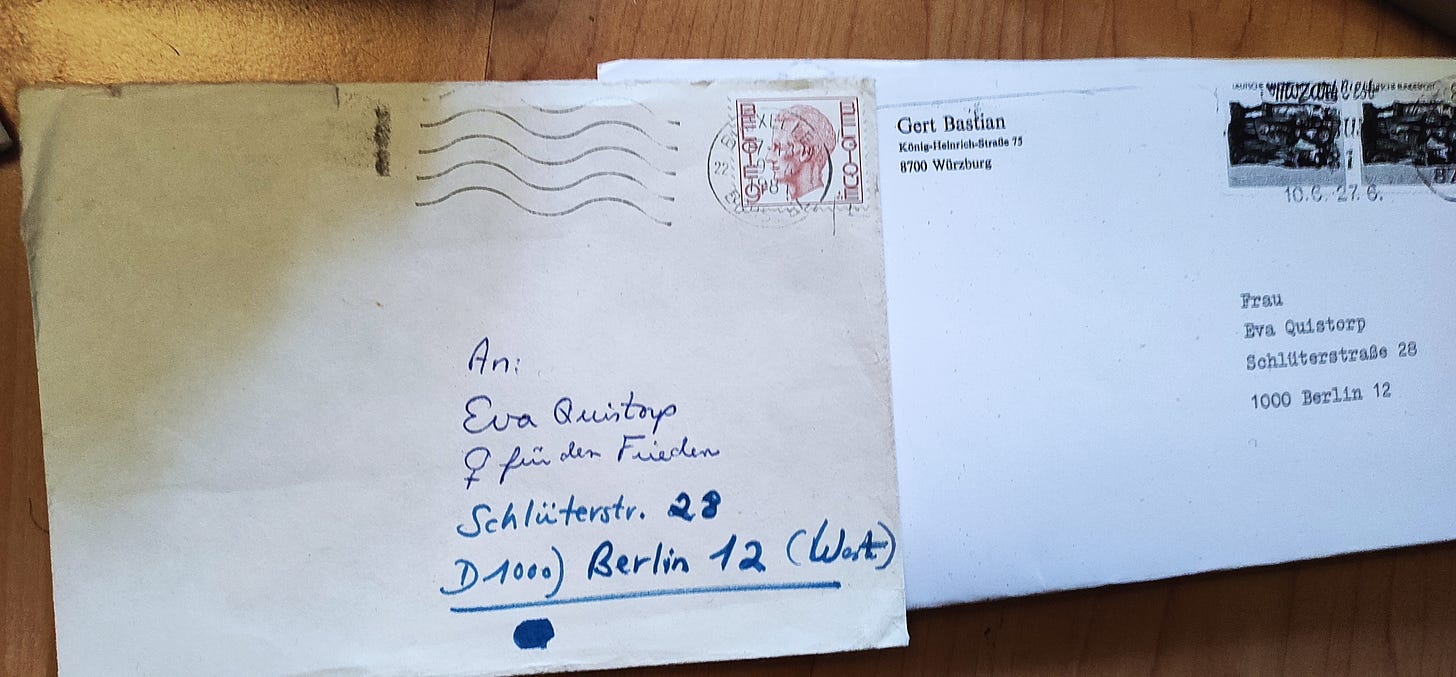 BELGIE
BELGIQUE
An:
Eva Quistorp
♀ für den Frieden
Schlüterstr. 28
D1000) Berlin 12 (West)
Gert Bastian
König-Heinrich-Straße 75
8700 Würzburg
mozartfest
10.6. 27.6.
Frau
Eva Quistorp
Schlüterstraße 28
1000 Berlin 12